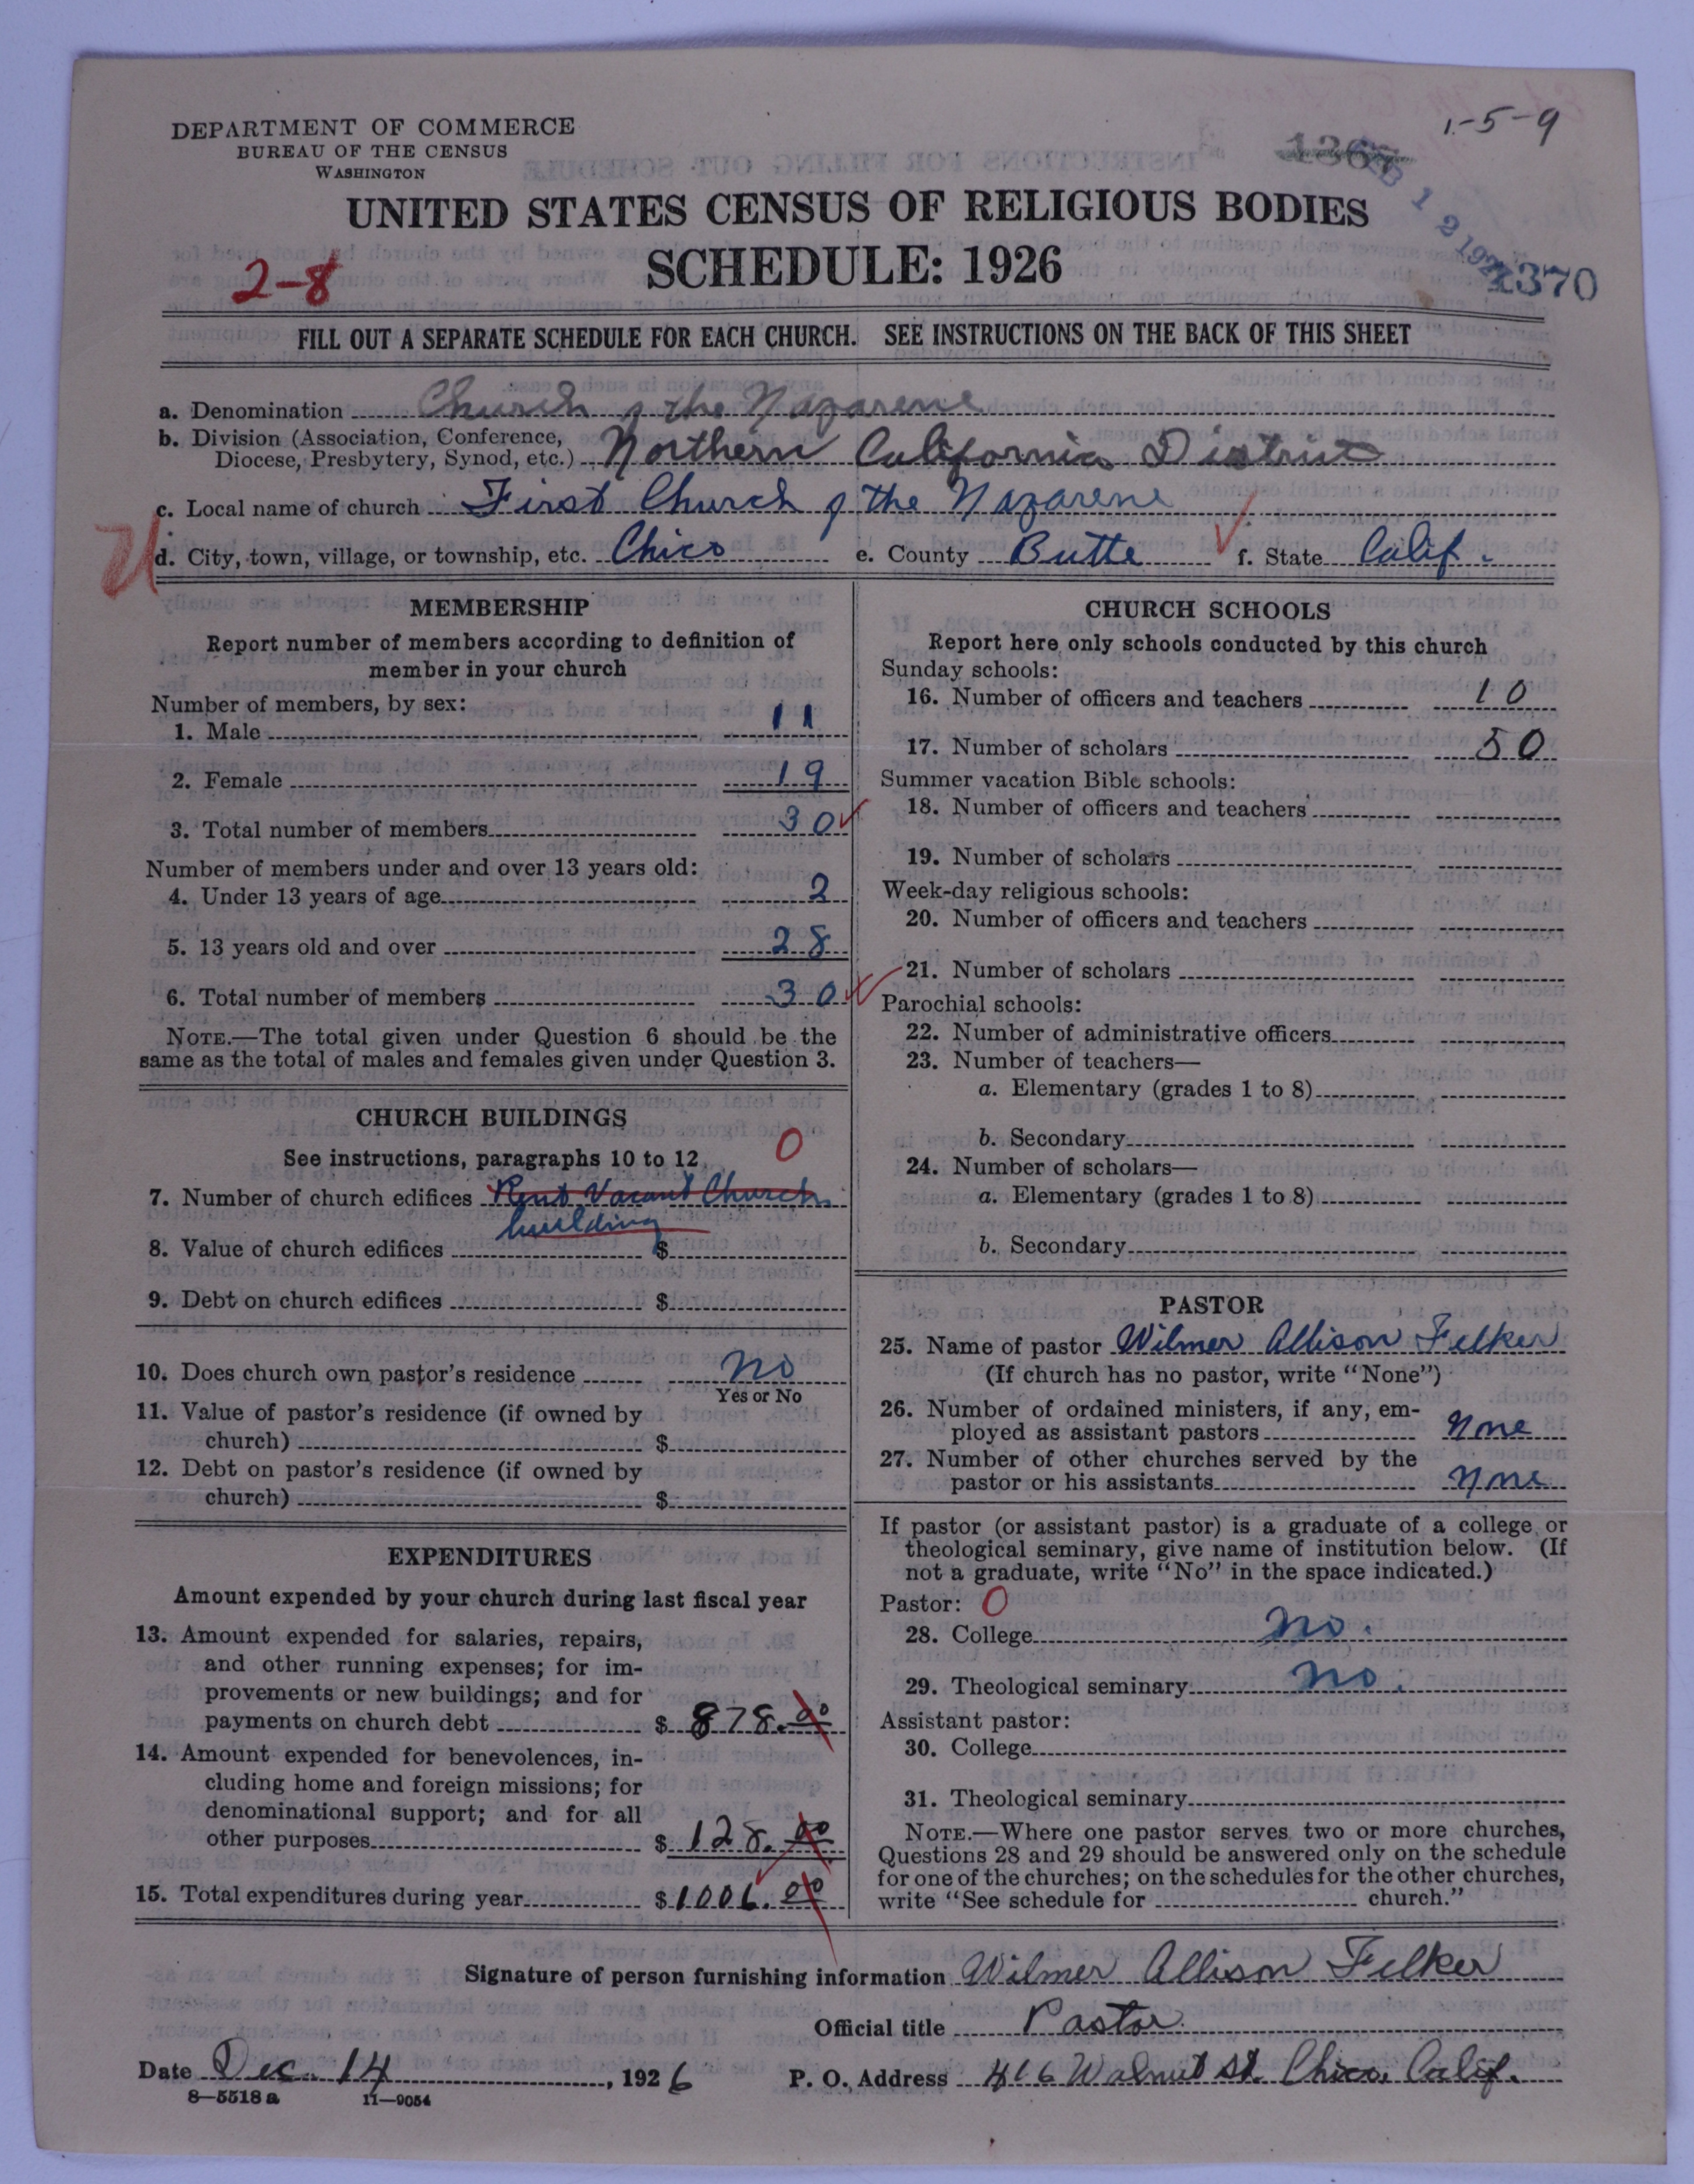 DEPARTMENT OF COMMERCE
BUREAU OF THE CENSUS
WASHINGTON
1-5-9
1367
1370
UNITED STATES CENSUS OF RELIGIOUS BODIES
SCHEDULE: 1926
2-8
FILL OUT A SEPARATE SCHEDULE FOR EACH CHURCH. SEE INSTRUCTIONS ON THE BACK OF THIS SHEET
a. Denomination Church of the Nazarene
b. Division (Association, Conference,
Diocese, Presbytery, Synod, etc.) Northern California District
c. Local name of church First Church of the Nazarene
d. City, town, village, or township, etc. Chico e. County Butte f. State Calif.
MEMBERSHIP
Report number of members according to definition of
member in your church
Number of members, by sex:
1. Male 11
2. Female 19
3. Total number of members 30
Number of members under and over 13 years old:
4. Under 13 years of age 2
5. 13 years old and over 28
6. Total number of members 30
NOTE.—The total given under Question 6 should be the
same as the total of males and females given under Question 3.
CHURCH BUILDINGS
See instructions, paragraphs 10 to 12
0
7. Number of church edifices Rent Vacant Church
building
8. Value of church edifices $
9. Debt on church edifices $
10. Does church own pastor's residence No
Yes or No
11. Value of pastor's residence (if owned by
church) $
12. Debt on pastor's residence (if owned by
church) $
EXPENDITURES
Amount expended by your church during last fiscal year
13. Amount expended for salaries, repairs,
and other running expenses; for im-
provements or new buildings; and for
payments on church debt $ 878.00
14. Amount expended for benevolences, in-
cluding home and foreign missions; for
denominational support; and for all
other purposes $ 128.00
15. Total expenditures during year $ 1006.00
CHURCH SCHOOLS
Report here only schools conducted by this church
Sunday schools:
16. Number of officers and teachers 10
17. Number of scholars 50
Summer vacation Bible schools:
18. Number of officers and teachers
19. Number of scholars
Week-day religious schools:
20. Number of officers and teachers
21. Number of scholars
Parochial schools:
22. Number of administrative officers
23. Number of teachers—
a. Elementary (grades 1 to 8)
b. Secondary
24. Number of scholars—
a. Elementary (grades 1 to 8)
b. Secondary
PASTOR
25. Name of pastor Wilmer Allison Felker
(If church has no pastor, write "None")
26. Number of ordained ministers, if any, em-
ployed as assistant pastors None
27. Number of other churches served by the
pastor or his assistants None
If pastor (or assistant pastor) is a graduate of a college or
theological seminary, give name of institution below. (If
not a graduate, write "No" in the space indicated.)
Pastor: 0
28. College No.
29. Theological seminary No.
Assistant pastor:
30. College
31. Theological seminary
NOTE.—Where one pastor serves two or more churches,
Questions 28 and 29 should be answered only on the schedule
for one of the churches; on the schedules for the other churches,
write "See schedule for church."
Signature of person furnishing information Wilmer Allison Felker
Official title Pastor
Date Dec. 14, 1926 P. O. Address 416 Walnut St. Chico, Calif.
8—5518 a 11—9054